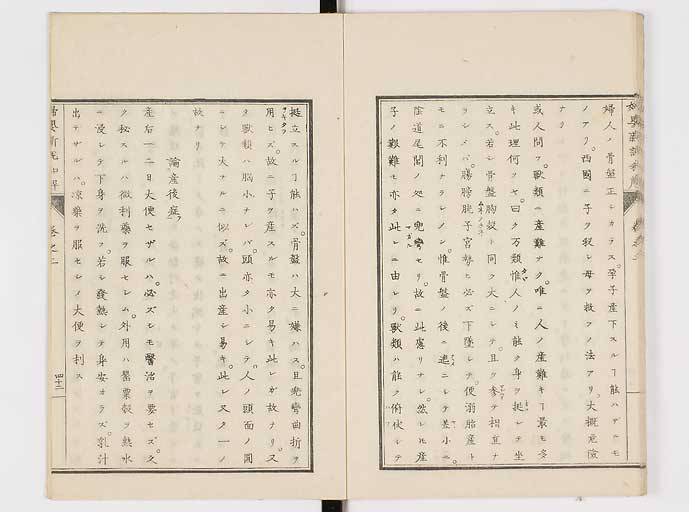 婦人ノ骨盤正シカラス。孕子産下スルヿ能ハザルモ
ノアリ。西國ニ子ヲ殺シ母ヲ救フノ法アリ。大概危険
ナリ
或人問フ。獣類ニ産難ナク。唯ニ人ノ産難キヿ最モ多
キ此理何ソヤ。曰ク万類惟人ノミ能ク身ヲ挺シテ坐
立ス。若シ骨盤胸
同ク大ニシテ。且ク
相直ナ
ラシメバ。腸膀胱子宮勢ヒ必ズ下墜シテ。便溺胎産ト
モニ不利ナラシメン。惟骨盤ノ後ニ進ニシテ差小ニ。
陰道尾閭ノ処ニ兜彎セリ。故ニ此慮リナシ。然レㇳモ産
子ノ艱難モ亦タ此レニ由レリ。獣類ハ能ク俯伏シテ
挺立スルヿ能ハズ。骨盤ハ大ニ嫌ハス。且兜彎曲折ヲ
用ヒズ。故ニ子ヲ産スルモ亦タ易キ此レガ故ナリ。又
タ獣類ハ脳小ナレバ。頭亦タ小ニシテ。人ノ頭面ノ圓
ニシテ大ナルニ似ズ。故ニ出産シ易キ。此レ又タ一ノ
故ナリ
論産後症
産后一二日大便セザルハ。必ズシモ醫治ヲ要セズ。久
ク秘スルハ微利藥ヲ服セシム。外用ハ罌粟殻ヲ熱水
ニ浸シテ下身ヲ洗フ。若シ發熱シテ身安カラズ。乳汁
出テザルハ。凉藥ヲ服セシメ大便ヲ利ス
巻之二
四十二